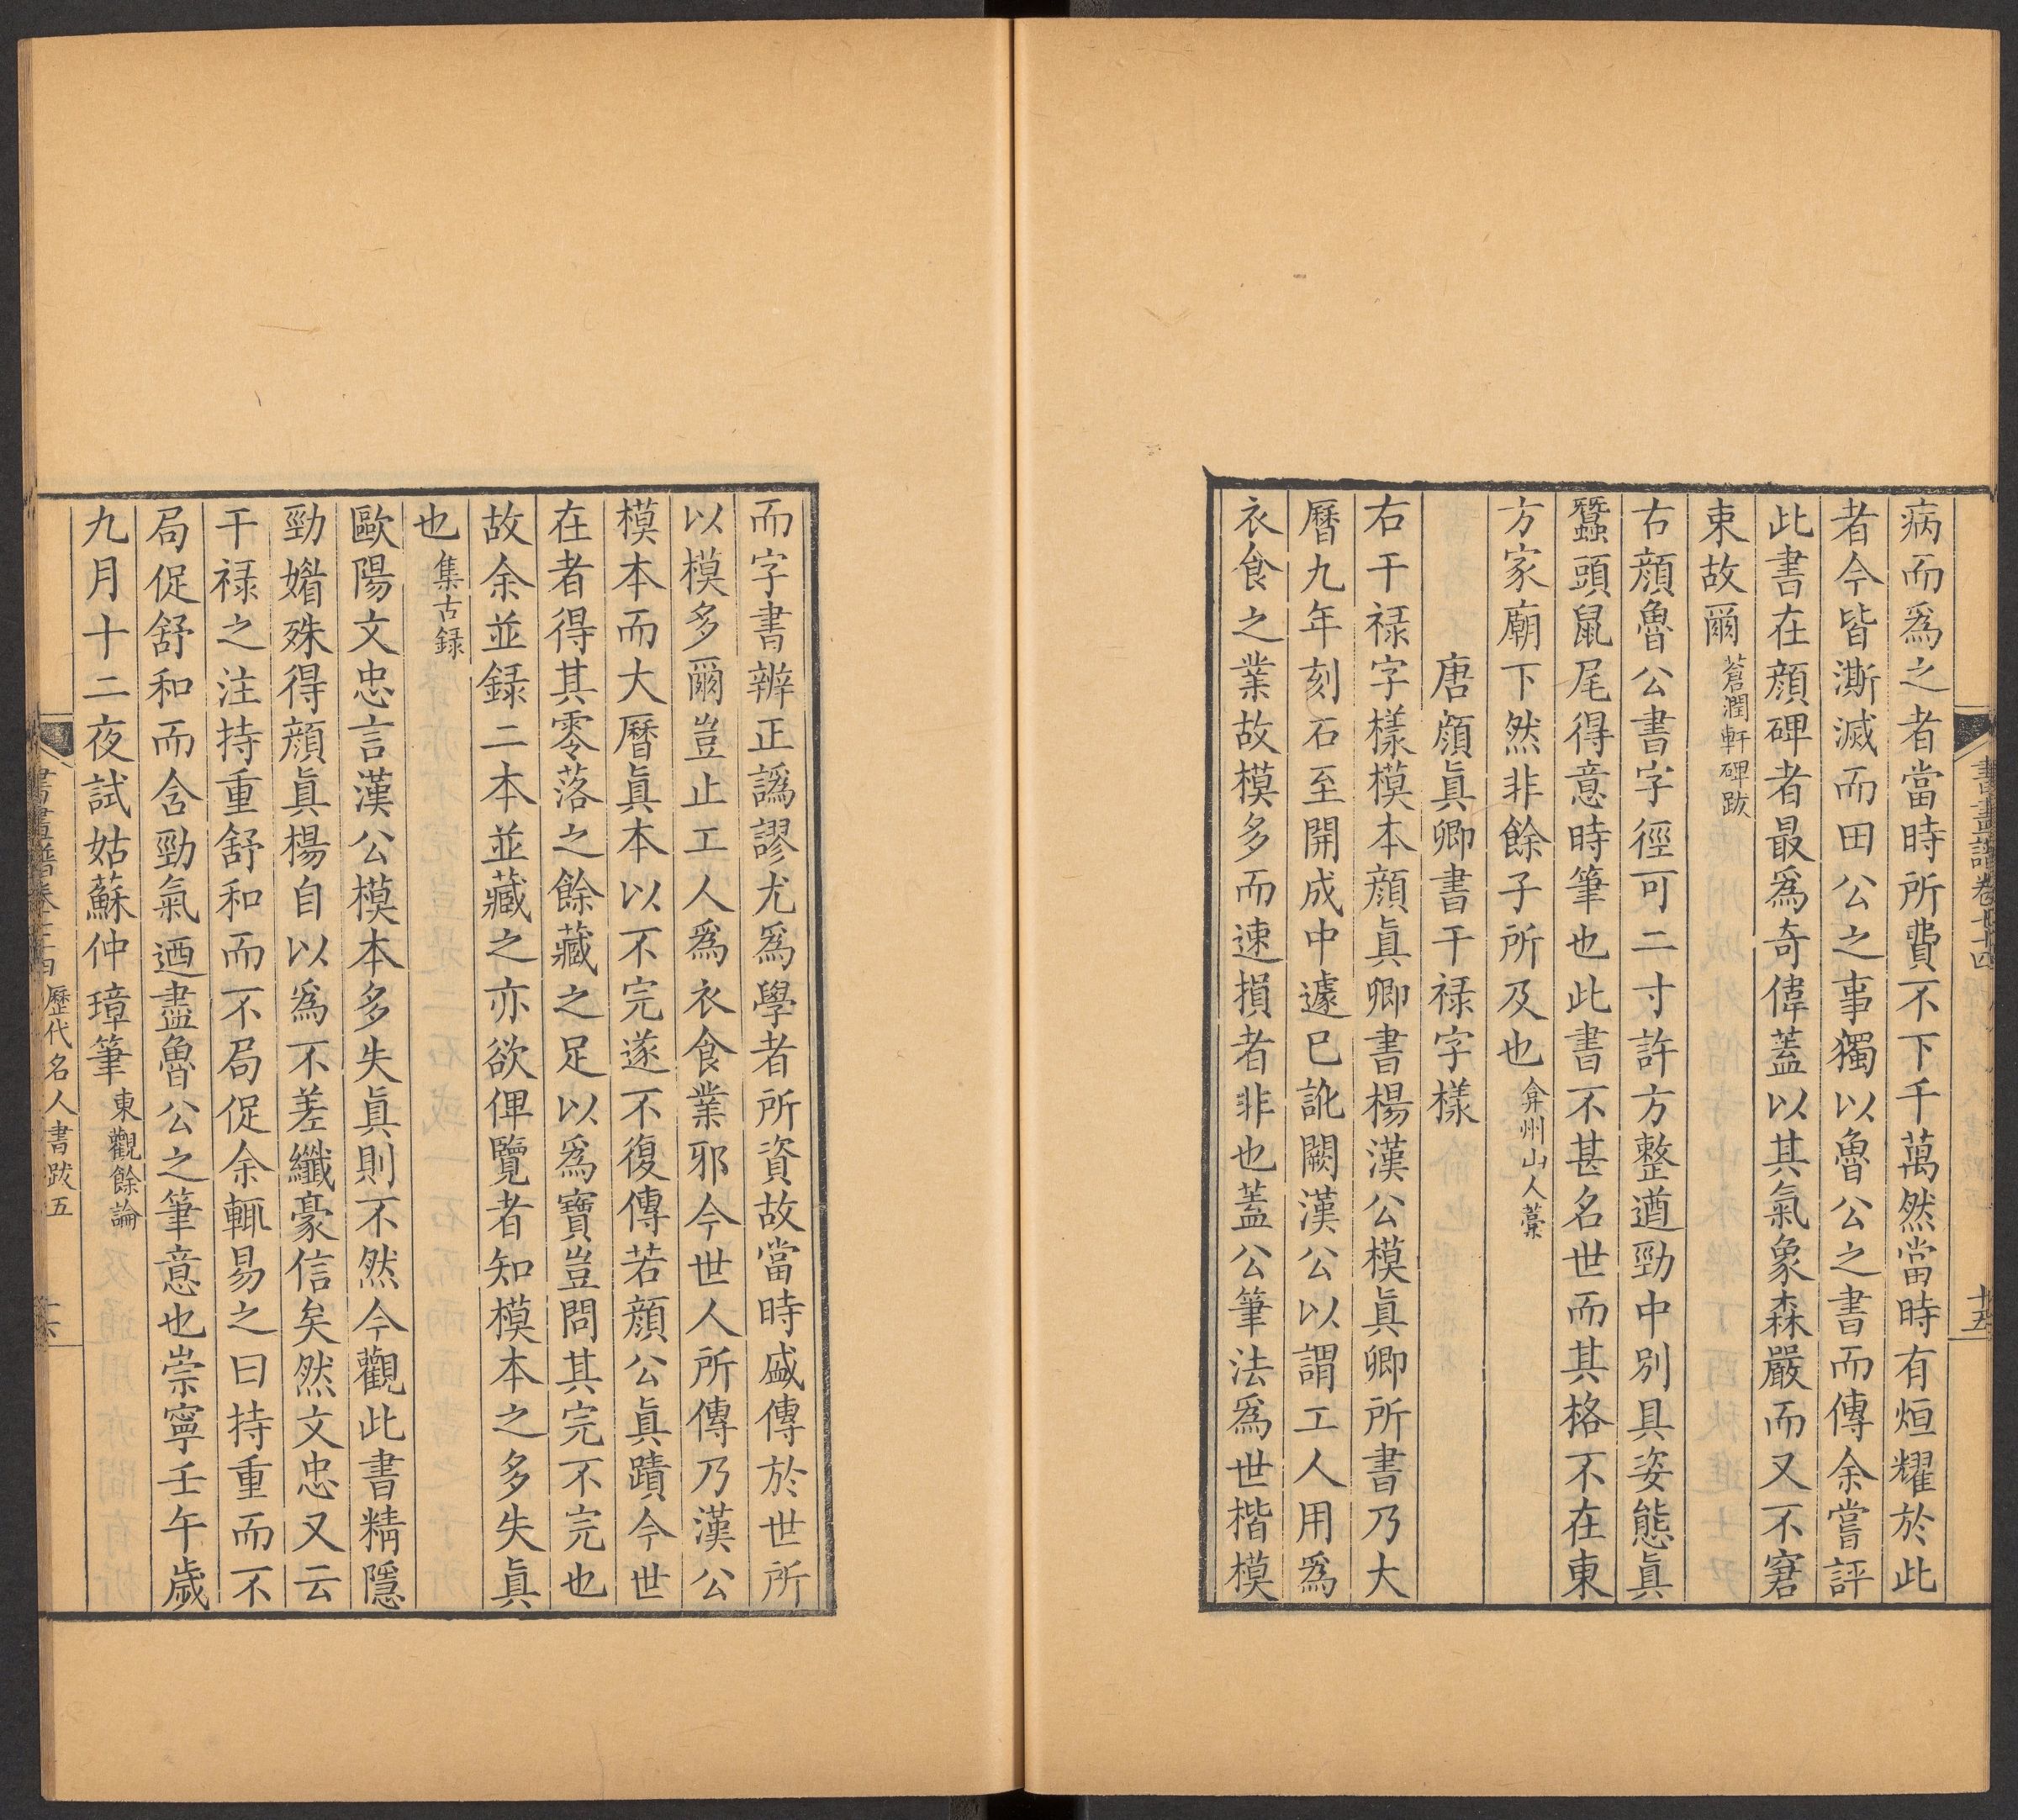 書畫譜卷七十四 十五
病而爲之者當時所費不下千萬然當時有烜耀於此
者今皆澌滅而田公之事獨以魯公之書而傳余嘗評
此書在顔碑者最爲奇偉蓋以其氣象森嚴而又不窘
束故爾 蒼潤軒碑跋
右顔魯公書字徑可二寸許方整遒勁中別具姿態眞
蠶頭鼠尾得意時筆也此書不甚名世而其格不在東
方家廟下然非餘子所及也 弇州山人藳
唐顔眞卿書干禄字樣
右干禄字樣模本顔眞卿書楊漢公模眞卿所書乃大
曆九年刻石至開成中遽已訛闕漢公以謂工人用爲
衣食之業故模多而速損者非也蓋公筆法爲世楷模
而字書辨正譌謬尤爲學者所資故當時盛傳於世所
以模多爾豈止工人爲衣食業邪今世人所傳乃漢公
模本而大曆眞本以不完遂不復傳若顔公眞蹟今世
在者得其零落之餘藏之足以爲寶豈問其完不完也
故余並録二本並藏之亦欲俾覽者知模本之多失眞
也 集古録
歐陽文忠言漢公模本多失眞則不然今觀此書精隱
勁媘殊得顔眞楊自以爲不差纖豪信矣然文忠又云
干禄之注持重舒和而不局促余輒易之曰持重而不
局促舒和而含勁氣迺盡魯公之筆意也崇寧壬午歲
九月十二夜試姑蘇仲璋筆 東觀餘論
書畫譜卷七十四 歷代名人書跋五 十六